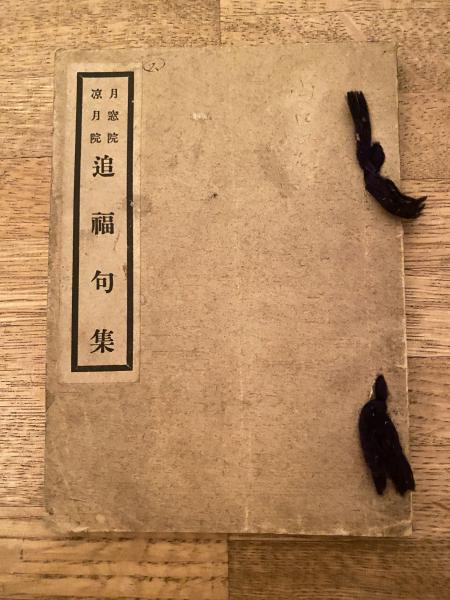 月窓院
凉月院
追福句集